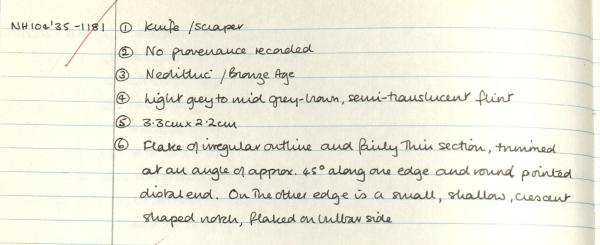 NH104'35-1181 ① Knife/scraper
② No provenance recorded
③ Neolithic/Bronze Age
④ Light grey to mid grey-brown, semi-translucent flint
⑤ 3.3cm x 2.2cm
⑥ Flake of irregular outline and fairly thin section, trimmed
at an angle of approx. 45° along one edge and round pointed
distal end. On the other edge is a small, shallow, crescent
shaped notch, flaked on bulbar side